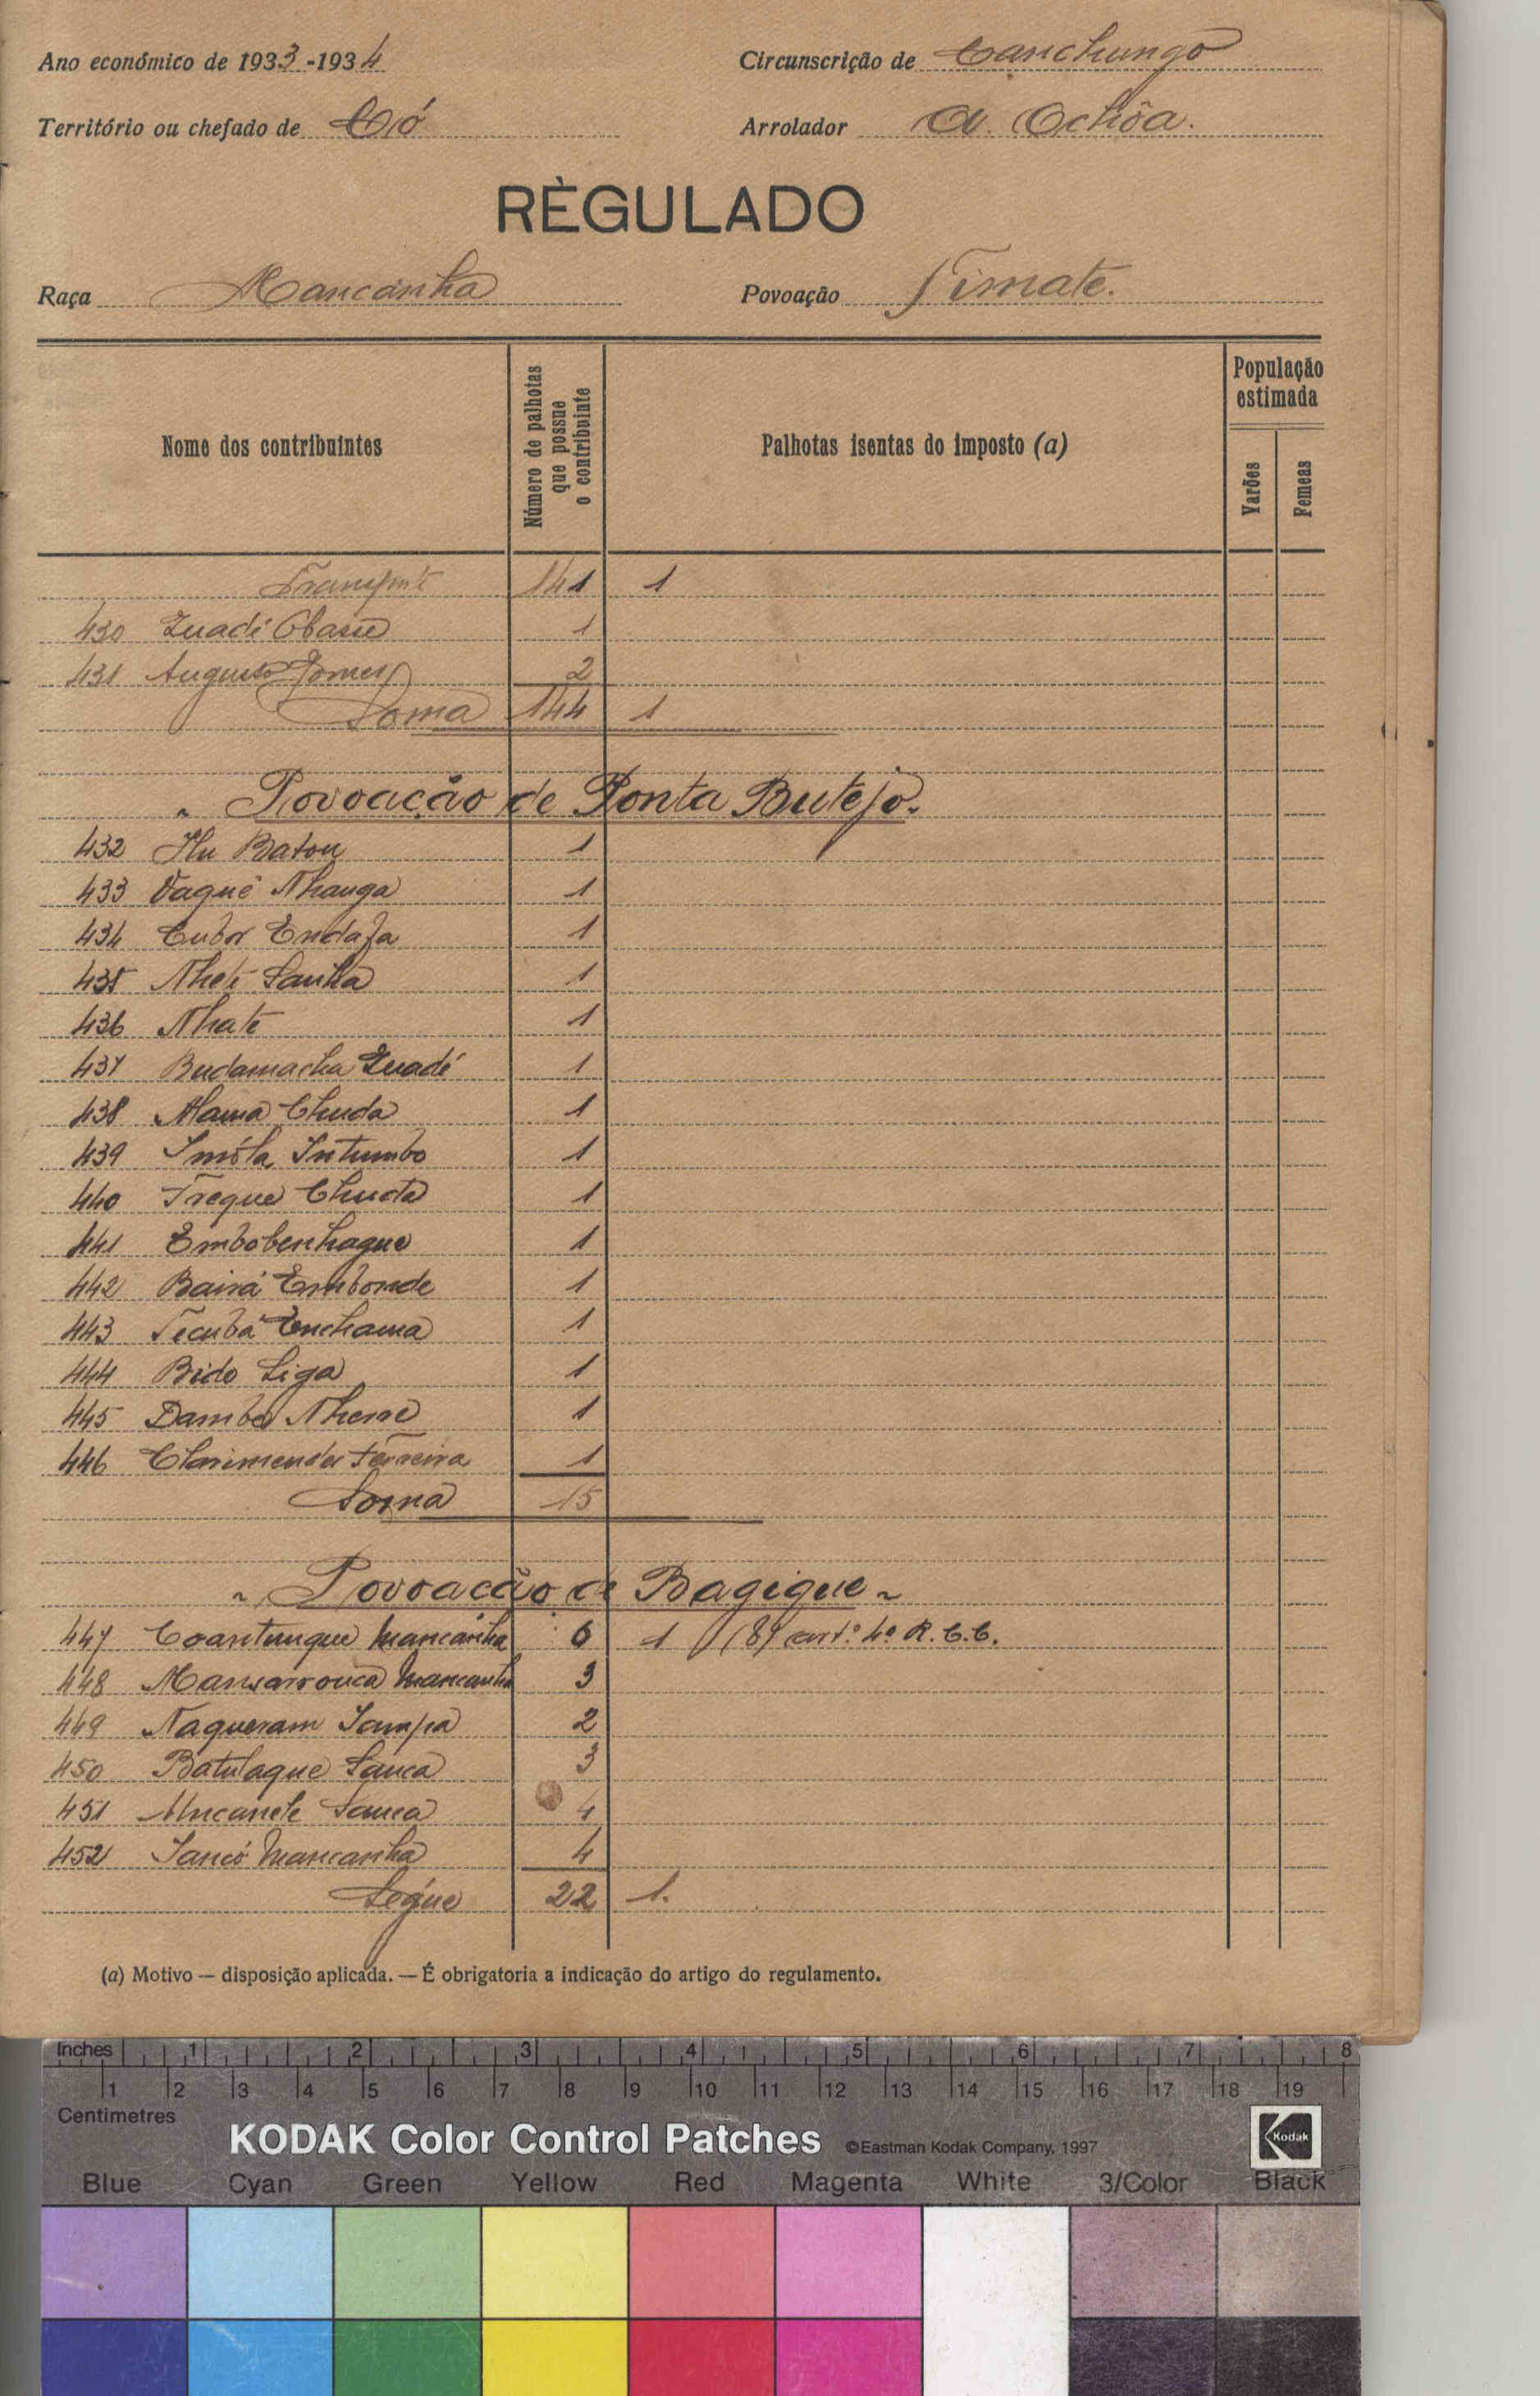 Ano económico de 1933-1934
Circunscrição de Canchungo
Território ou chefado de Có
Arrolador A. Ochôa.
RÈGULADO
Raça Mancanha
Povoação Timate.
Nome dos contribuintes
Número de palhotas que possue o contribuinte
Palhotas isentas do imposto (a)
População estimada
Varões
Femeas
Transporte 141 1
430 Quadé 1
431 Augusto Gomes 2
Soma 144 1
Povoação de Ponta Butejo.
432 Hu Baton 1
433 Vaguê Nhanga 1
434 Cubor Endafa 1
435 Nhelé Sanha 1
436 Nhate 1
437 Budamacha Quadé 1
438 Mama Chuda 1
439 Imóla Intumbo 1
440 Treque Chuda 1
441 Embobenhague 1
442 Bairá Embonde 1
443 Tecubá Enchama 1
444 Bido Liga 1
445 Dambá 1
446 Ferreira 1
Soma 15
Povoação de Bagigue
447 Coantungue Mancanha 6 1 (8) art.º 4º R.C.C.
448 Mansarrouca Mancanha 3
449 Naqueram Sampa 2
450 Batulaque Sanca 3
451 Sanca 4
452 Sancó Mancanha 4
Segue 22 1.
(a) Motivo — disposição aplicada. — É obrigatoria a indicação do artigo do regulamento.
Inches 1 2 3 4 5 6 7 8
1 2 3 4 5 6 7 8 9 10 11 12 13 14 15 16 17 18 19
Centimetres
KODAK Color Control Patches ©Eastman Kodak Company, 1997
Kodak
Blue Cyan Green Yellow Red Magenta White 3/Color Black